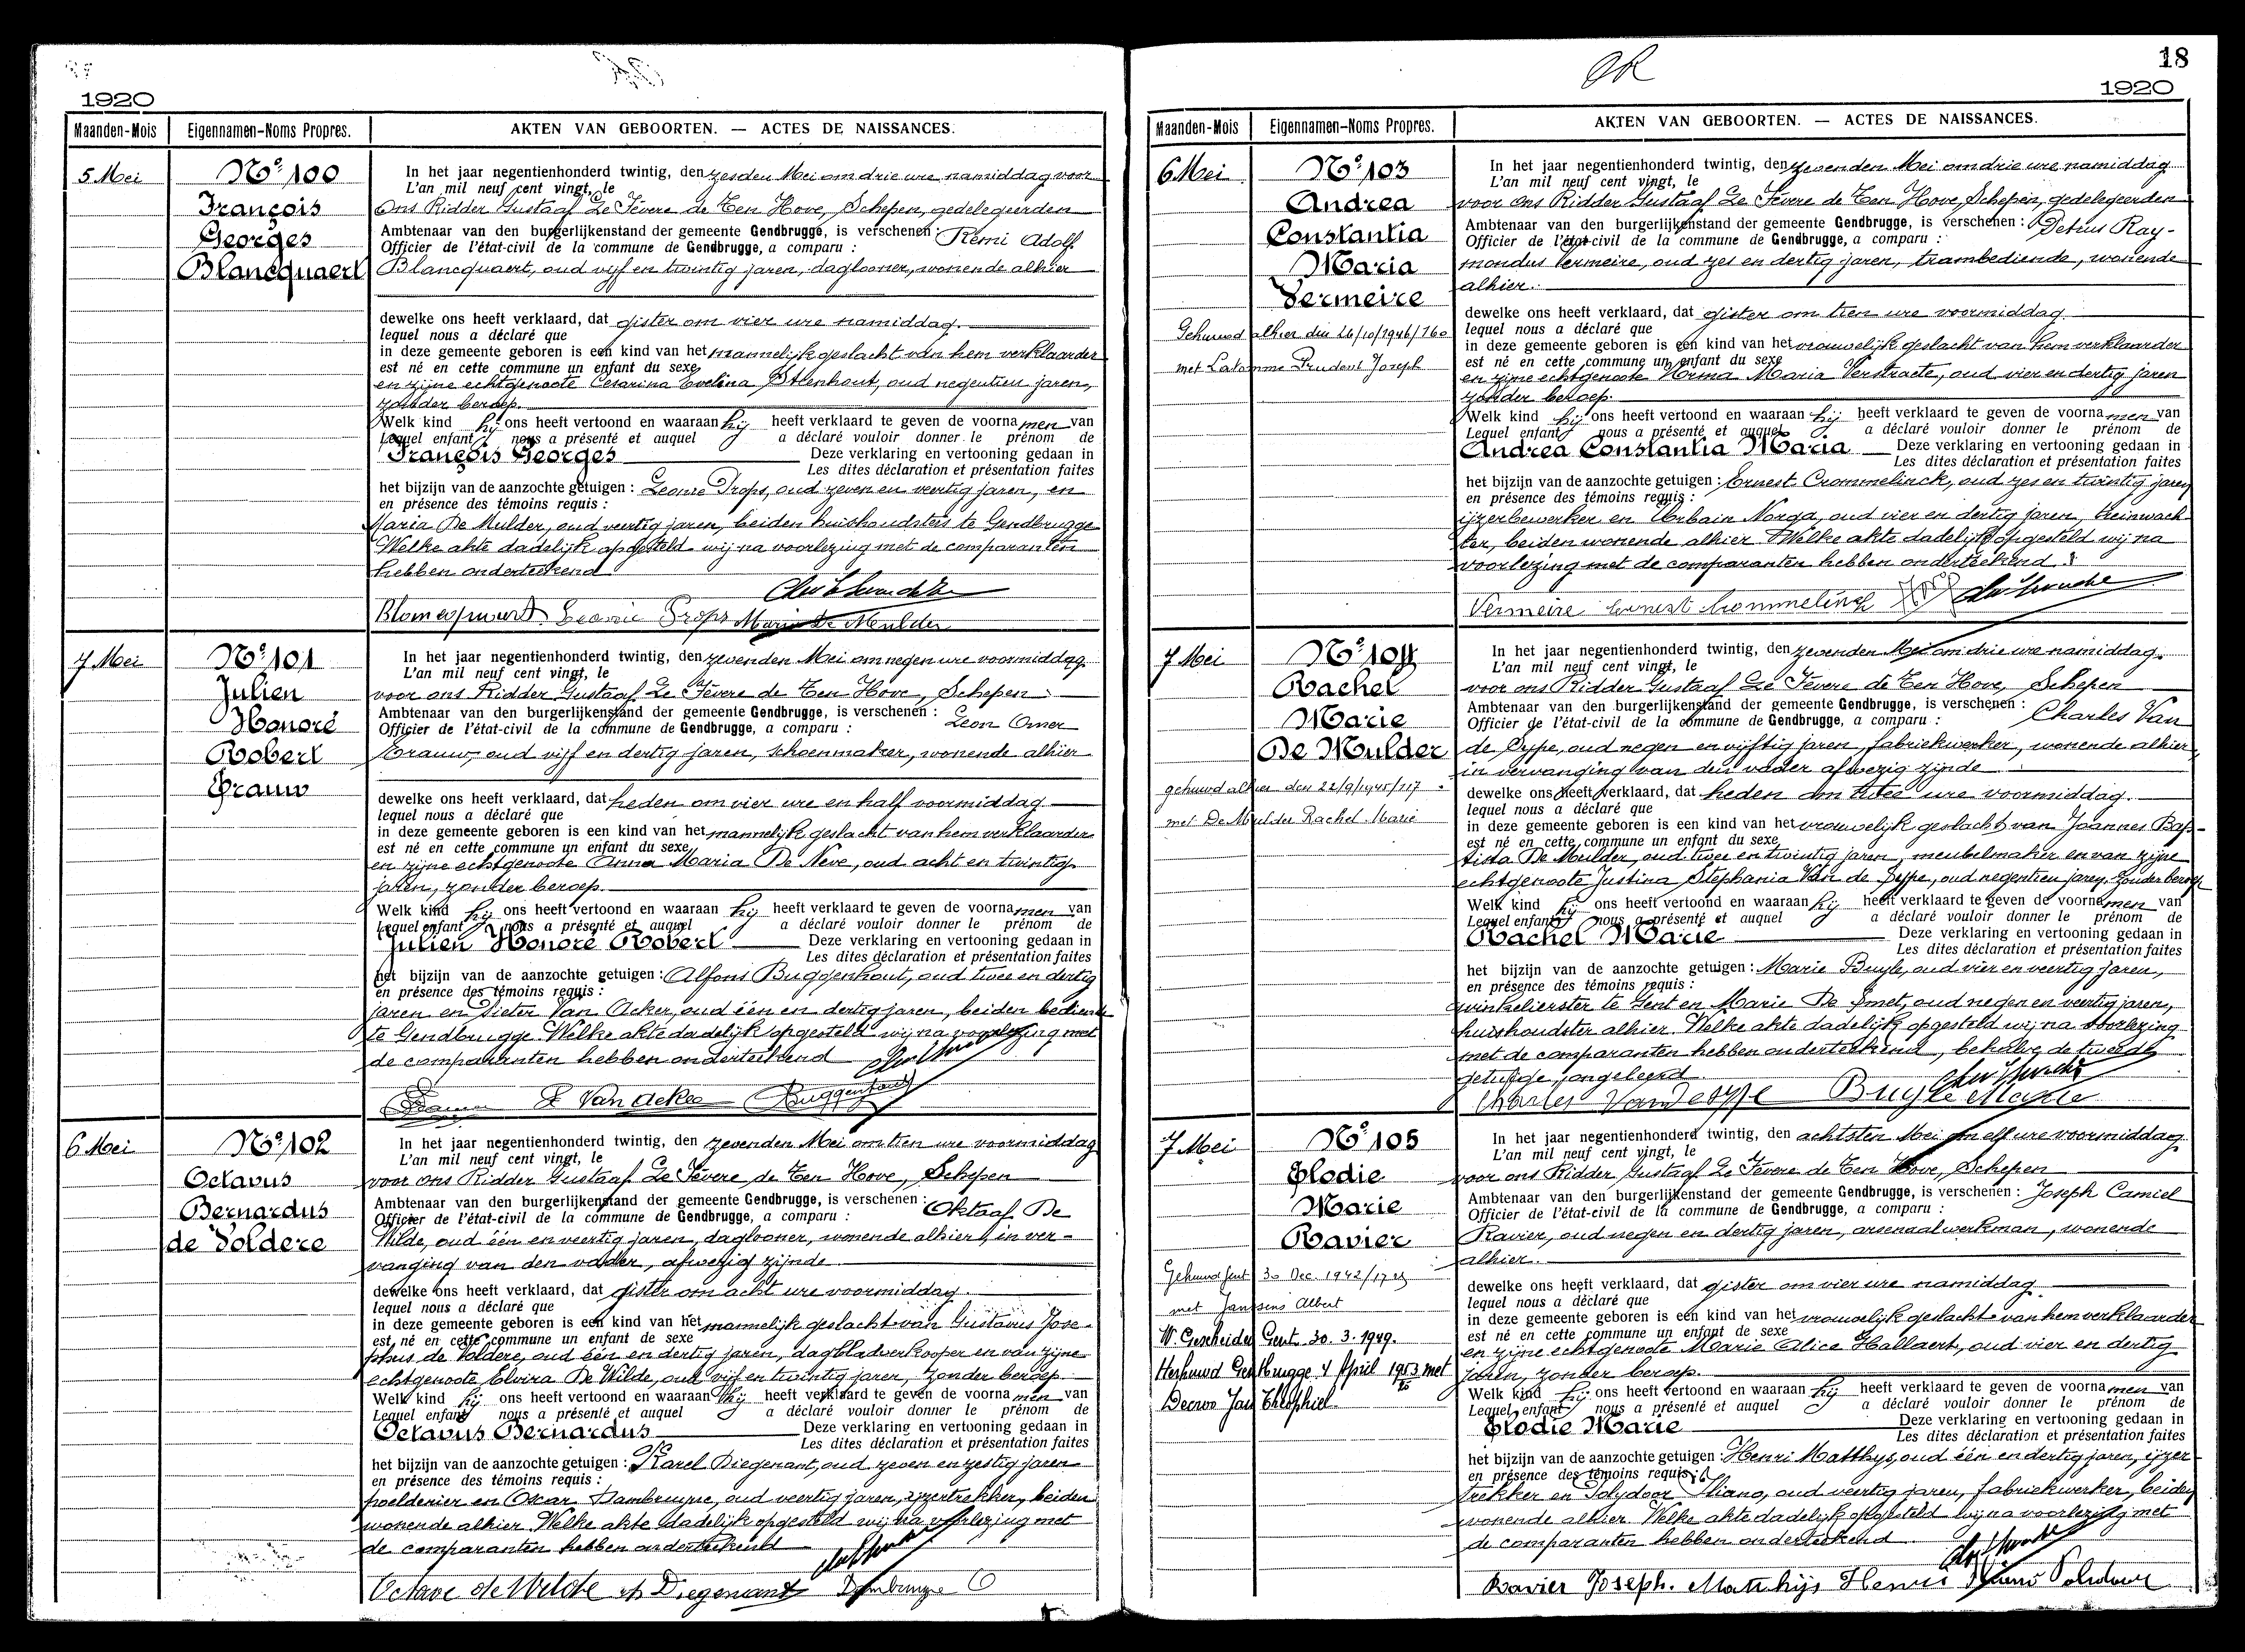 1920
Maanden-Mois Eigennamen-Noms Propres. AKTEN VAN GEBOORTEN. — ACTES DE NAISSANCES.
5 Mei
Nº 100
François
Georges
Blancquaert
In het jaar negentienhonderd twintig, den zesden Mei om drie ure namiddag voor
L'an mil neuf cent vingt, le
Ons Ridder Gustaaf Le Fèvere de Ten Hove, Schepen, gedelegeerden
Ambtenaar van den burgerlijkenstand der gemeente Gendbrugge, is verschenen : Remi Adolf
Officier de l'état-civil de la commune de Gendbrugge, a comparu :
Blancquaert, oud vijf en twintig jaren, daglooner, wonende alhier
dewelke ons heeft verklaard, dat gister om vier ure namiddag.
lequel nous a déclaré que
in deze gemeente geboren is een kind van het mannelijk geslacht van hem verklaarder
est né en cette commune un enfant du sexe
en zijne echtgenoote Cesarina Evelina Steenhout, oud negentien jaren,
zonder beroep.
Welk kind hij ons heeft vertoond en waaraan hij heeft verklaard te geven de voornamen van
Lequel enfant nous a présenté et auquel a déclaré vouloir donner le prénom de
François Georges Deze verklaring en vertooning gedaan in
Les dites déclaration et présentation faites
het bijzijn van de aanzochte getuigen : Leonie Props, oud zeven en veertig jaren, en
en présence des témoins requis :
Maria De Mulder, oud veertig jaren, beiden huishoudsters te Gendbrugge
Welke akte dadelijk opgesteld wij na voorlezing met de comparanten
hebben onderteekend
Leonie Props Maria De Mulder
7 Mei
Nº 101
Julien
Honoré
Robert
Grauw
In het jaar negentienhonderd twintig, den zevenden Mei om negen ure voormiddag
L'an mil neuf cent vingt, le
voor ons Ridder Gustaaf Le Fèvere de Ten Hove, Schepen
Ambtenaar van den burgerlijkenstand der gemeente Gendbrugge, is verschenen : Leon Omer
Officier de l'état-civil de la commune de Gendbrugge, a comparu :
Grauw, oud vijf en dertig jaren, schoenmaker, wonende alhier
dewelke ons heeft verklaard, dat heden om vier ure en half voormiddag
lequel nous a déclaré que
in deze gemeente geboren is een kind van het mannelijk geslacht van hem verklaarder
est né en cette commune un enfant du sexe
en zijne echtgenoote Anna Maria De Neve, oud acht en twintig
jaren, zonder beroep.
Welk kind hij ons heeft vertoond en waaraan hij heeft verklaard te geven de voornamen van
Lequel enfant nous a présenté et auquel a déclaré vouloir donner le prénom de
Julien Honoré Robert Deze verklaring en vertooning gedaan in
Les dites déclaration et présentation faites
het bijzijn van de aanzochte getuigen : Alfons Buggenhout, oud twee en dertig
en présence des témoins requis :
jaren en Pieter Van Acker, oud één en dertig jaren, beiden bediende
te Gendbrugge. Welke akte dadelijk opgesteld wij na voorlezing met
de comparanten hebben onderteekend
P Van Acker Buggenhout
6 Mei
Nº 102
Octavus
Bernardus
de Voldere
In het jaar negentienhonderd twintig, den zevenden Mei om tien ure voormiddag
L'an mil neuf cent vingt, le
voor ons Ridder Gustaaf Le Fèvere de Ten Hove, Schepen
Ambtenaar van den burgerlijkenstand der gemeente Gendbrugge, is verschenen : Oktaaf De
Officier de l'état-civil de la commune de Gendbrugge, a comparu :
Wilde, oud één en veertig jaren, daglooner, wonende alhier, in ver-
vanging van den vader, afwezig zijnde
dewelke ons heeft verklaard, dat gister om acht ure voormiddag.
lequel nous a déclaré que
in deze gemeente geboren is een kind van het mannelijk geslacht van Gustavus Jose-
est né en cette commune un enfant de sexe
phus de Voldere, oud één en dertig jaren, dagbladverkooper en van zijne
echtgenoote Elvira De Wilde, oud vijf en twintig jaren, zonder beroep
Welk kind hij ons heeft vertoond en waaraan hij heeft verklaard te geven de voornamen van
Lequel enfant nous a présenté et auquel a déclaré vouloir donner le prénom de
Octavus Bernardus Deze verklaring en vertooning gedaan in
Les dites déclaration et présentation faites
het bijzijn van de aanzochte getuigen : Karel Diegenant, oud zeven en zestig jaren
en présence des témoins requis :
poeldenier en Oscar Dambruyne, oud veertig jaren, ijzertrekker, beiden
wonende alhier. Welke akte dadelijk opgesteld wij na voorlezing met
de comparanten hebben onderteekend
Octave de Wilde Diegenant Dambruyne O
OK
18
1920
Maanden-Mois Eigennamen-Noms Propres. AKTEN VAN GEBOORTEN. — ACTES DE NAISSANCES.
6 Mei
Nº 103
Andrea
Constantia
Maria
Vermeire
Gehuwd alhier den 26/10/1946/160
met Latomme Prudent Joseph
In het jaar negentienhonderd twintig, den zevenden Mei om drie ure namiddag
L'an mil neuf cent vingt, le
voor ons Ridder Gustaaf Le Fèvere de Ten Hove, Schepen, gedelegeerden
Ambtenaar van den burgerlijkenstand der gemeente Gendbrugge, is verschenen : Petrus Ray-
Officier de l'état-civil de la commune de Gendbrugge, a comparu :
mondus Vermeire, oud zes en dertig jaren, trambediende, wonende
alhier.
dewelke ons heeft verklaard, dat gister om tien ure voormiddag
lequel nous a déclaré que
in deze gemeente geboren is een kind van het vrouwelijk geslacht van hem verklaarder
est né en cette commune un enfant du sexe
en zijne echtgenoote Irma Maria Verstraete, oud vier en dertig jaren
zonder beroep.
Welk kind hij ons heeft vertoond en waaraan hij heeft verklaard te geven de voornamen van
Lequel enfant nous a présenté et auquel a déclaré vouloir donner le prénom de
Andrea Constantia Maria Deze verklaring en vertooning gedaan in
Les dites déclaration et présentation faites
het bijzijn van de aanzochte getuigen : Ernest Crommelinck, oud zes en twintig jaren
en présence des témoins requis :
ijzerbewerker en Urbain Norga, oud vier en dertig jaren, treinwach-
ter, beiden wonende alhier. Welke akte dadelijk opgesteld wij na
voorlezing met de comparanten hebben onderteekend
Vermeire Ernest Crommelinck
7 Mei
Nº 104
Rachel
Marie
De Mulder
gehuwd alhier den 22/9/1945/117
met De Mulder Rachel Marie
In het jaar negentienhonderd twintig, den zevenden Mei om drie ure namiddag
L'an mil neuf cent vingt, le
voor ons Ridder Gustaaf Le Fèvere de Ten Hove, Schepen
Ambtenaar van den burgerlijkenstand der gemeente Gendbrugge, is verschenen : Charles Van
Officier de l'état-civil de la commune de Gendbrugge, a comparu :
de Sype, oud negen en vijftig jaren, fabriekwerker, wonende alhier,
in vervanging van den vader afwezig zijnde
dewelke ons heeft verklaard, dat heden om twee ure voormiddag.
lequel nous a déclaré que
in deze gemeente geboren is een kind van het vrouwelijk geslacht van Joannes Bap-
est né en cette commune un enfant du sexe
tista De Mulder, oud twee en twintig jaren, meubelmaker en van zijne
echtgenoote Justina Stephania Van de Sype, oud negentien jaren, zonder beroep
Welk kind hij ons heeft vertoond en waaraan hij heeft verklaard te geven de voornamen van
Lequel enfant nous a présenté et auquel a déclaré vouloir donner le prénom de
Rachel Marie Deze verklaring en vertooning gedaan in
Les dites déclaration et présentation faites
het bijzijn van de aanzochte getuigen : Marie Buyle, oud vier en veertig jaren,
en présence des témoins requis :
winkelierster te Gent en Marie De Smet, oud negen en veertig jaren,
huishoudster alhier. Welke akte dadelijk opgesteld wij na voorlezing
met de comparanten hebben onderteekend, behalve de tweede
getuige, ongeleerd
Charles Van De Sype Buyle Marie
7 Mei
Nº 105
Elodie
Marie
Ravier
Gehuwd Gent 30 Dec. 1942/
met Janssens Albert
W. Gescheiden Gent 30. 3. 1949.
Herhuwd Gentbrugge 4 April 1953 met
Theophiel
In het jaar negentienhonderd twintig, den achtsten Mei om elf ure voormiddag
L'an mil neuf cent vingt, le
voor ons Ridder Gustaaf Le Fèvere de Ten Hove, Schepen
Ambtenaar van den burgerlijkenstand der gemeente Gendbrugge, is verschenen : Joseph Camiel
Officier de l'état-civil de la commune de Gendbrugge, a comparu :
Ravier, oud negen en dertig jaren, arsenaalwerkman, wonende
alhier.
dewelke ons heeft verklaard, dat gister om vier ure namiddag
lequel nous a déclaré que
in deze gemeente geboren is een kind van het vrouwelijk geslacht van hem verklaarder
est né en cette commune un enfant de sexe
en zijne echtgenoote Marie Alice Hallaert, oud vier en dertig
jaren, zonder beroep.
Welk kind hij ons heeft vertoond en waaraan hij heeft verklaard te geven de voornamen van
Lequel enfant nous a présenté et auquel a déclaré vouloir donner le prénom de
Elodie Marie Deze verklaring en vertooning gedaan in
Les dites déclaration et présentation faites
het bijzijn van de aanzochte getuigen : Henri Matthys, oud één en dertig jaren, ijzer-
en présence des témoins requis :
trekker en Polydoor Iliano, oud veertig jaren, fabriekwerker, beiden
wonende alhier. Welke akte dadelijk opgesteld wij na voorlezing met
de comparanten hebben onderteekend
Ravier Joseph. Matthijs Henri